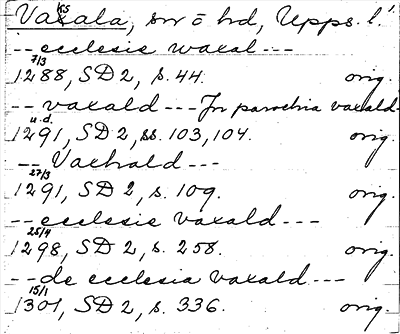 Vaxala, sn o hd, Upps. l.
ks
-- ecclesie waxal ---
7/3
1288, SD 2, s. 44. orig.
-- vaxald --- Jn parochia vaxald-
u.d.
1291, SD 2, ss. 103, 104. orig.
-- Vaxhald ---
27/3
1291, SD 2, s. 109. orig.
-- ecclesie vaxald ---
25/4
1298, SD 2, s. 258. orig.
-- de ecclesia vaxald ---
15/1
1301, SD 2, s. 336. orig.